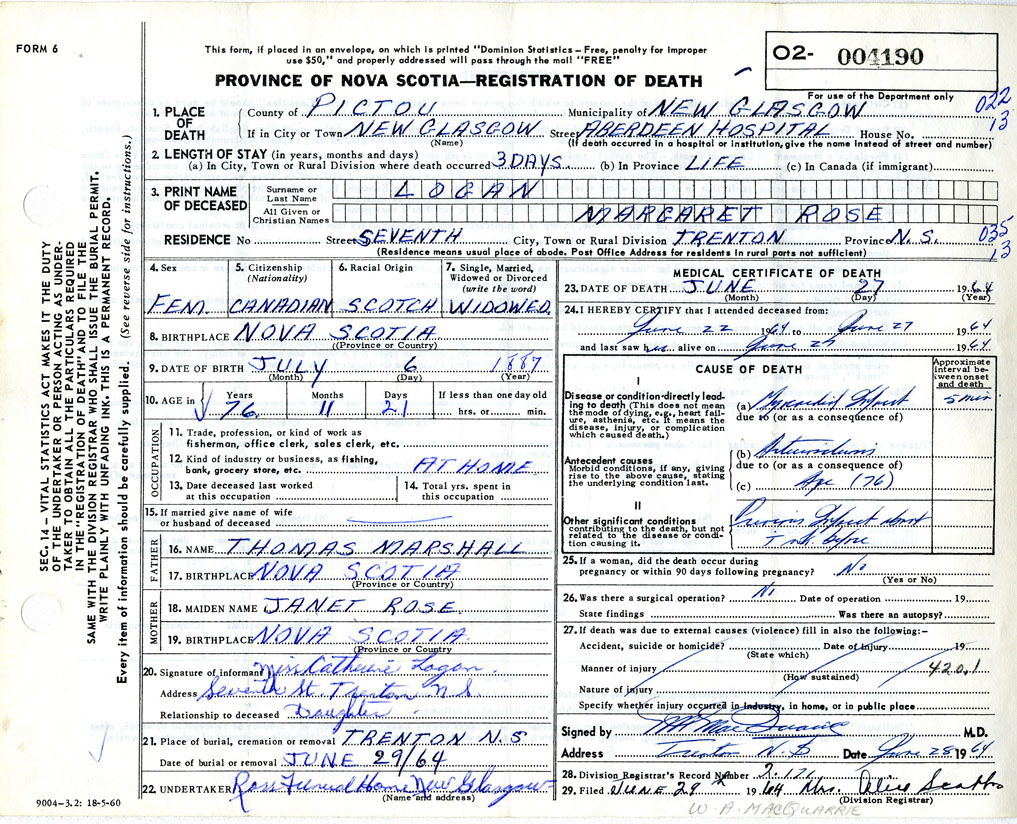 FORM 6
This form, if placed in an envelope, on which is printed "Dominion Statistics – Free, penalty for improper
use $50," and properly addressed will pass through the mail "FREE"
PROVINCE OF NOVA SCOTIA—REGISTRATION OF DEATH
O2- 004190
For use of the Department only
022
13
1. PLACE OF DEATH
County of PICTOU Municipality of NEW GLASGOW
If in City or Town NEW GLASGOW Street ABERDEEN HOSPITAL House No.
(Name) (If death occurred in a hospital or institution, give the name instead of street and number)
2. LENGTH OF STAY (in years, months and days)
(a) In City, Town or Rural Division where death occurred 3 DAYS. (b) In Province LIFE (c) In Canada (if immigrant)
3. PRINT NAME OF DECEASED
Surname or Last Name LOGAN
All Given or Christian Names MARGARET ROSE
035
13
RESIDENCE No Street SEVENTH City, Town or Rural Division TRENTON Province N.S.
(Residence means usual place of abode. Post Office Address for residents in rural parts not sufficient)
4. Sex FEM.
5. Citizenship (Nationality) CANADIAN
6. Racial Origin SCOTCH
7. Single, Married, Widowed or Divorced (write the word) WIDOWED
8. BIRTHPLACE NOVA SCOTIA
(Province or Country)
9. DATE OF BIRTH JULY 6 1887
(Month) (Day) (Year)
10. AGE in Years Months Days If less than one day old
76 11 21 hrs. or min.
OCCUPATION
11. Trade, profession, or kind of work as
fishermen, office clerk, sales clerk, etc.
12. Kind of industry or business, as fishing,
bank, grocery store, etc. AT HOME
13. Date deceased last worked
at this occupation
14. Total yrs. spent in
this occupation
15. If married give name of wife
or husband of deceased
FATHER
16. NAME THOMAS MARSHALL
17. BIRTHPLACE NOVA SCOTIA
(Province or Country)
MOTHER
18. MAIDEN NAME JANET ROSE
19. BIRTHPLACE NOVA SCOTIA.
(Province or Country)
20. Signature of informant Miss Catherine Logan.
Address Seventh St. Trenton N.S.
Relationship to deceased Daughter.
21. Place of burial, cremation or removal TRENTON N.S
Date of burial or removal JUNE 29/64
22. UNDERTAKER Ross Funeral Home New Glasgow
(Name and address)
9004-3.2: 18-5-60
MEDICAL CERTIFICATE OF DEATH
23. DATE OF DEATH JUNE 27 1964
(Month) (Day) (Year)
24. I HEREBY CERTIFY that I attended deceased from:
June 22 1964 to June 27 1964
and last saw her alive on June 27 1964
CAUSE OF DEATH
Approximate interval between onset and death
I
Disease or condition directly leading to death (This does not mean the mode of dying, e.g., heart failure, asthenia, etc. It means the disease, injury, or complication which caused death.)
(a) Myocardial Infarct 5 min
due to (or as a consequence of)
Antecedent causes
Morbid conditions, if any, giving rise to the above cause, stating the underlying condition last.
(b)
due to (or as a consequence of)
(c) Age (76)
II
Other significant conditions contributing to the death, but not related to the disease or condition causing it.
Previous Infarct
before
25. If a woman, did the death occur during
pregnancy or within 90 days following pregnancy? No
(Yes or No)
26. Was there a surgical operation? No Date of operation 19
State findings Was there an autopsy?
27. If death was due to external causes (violence) fill in also the following:–
Accident, suicide or homicide? Date of injury 19
(State which)
Manner of injury 420.1
(How sustained)
Nature of injury
Specify whether injury occurred in Industry, in home, or in public place
Signed by M.D.
Address Trenton N.S Date June 28 1964
28. Division Registrar's Record Number
29. Filed JUNE 29th 1964 Mrs. Alice
(Division Registrar)
W. A. MACQUARRIE
SEC. 14 – VITAL STATISTICS ACT MAKES IT THE DUTY
OF THE UNDERTAKER OR PERSON ACTING AS UNDER-
TAKER TO OBTAIN ALL THE PARTICULARS REQUIRED
IN THE "REGISTRATION OF DEATH" AND TO FILE THE
SAME WITH THE DIVISION REGISTRAR WHO SHALL ISSUE THE BURIAL PERMIT.
WRITE PLAINLY WITH UNFADING INK. THIS IS A PERMANENT RECORD.
Every item of information should be carefully supplied. (See reverse side for instructions.)